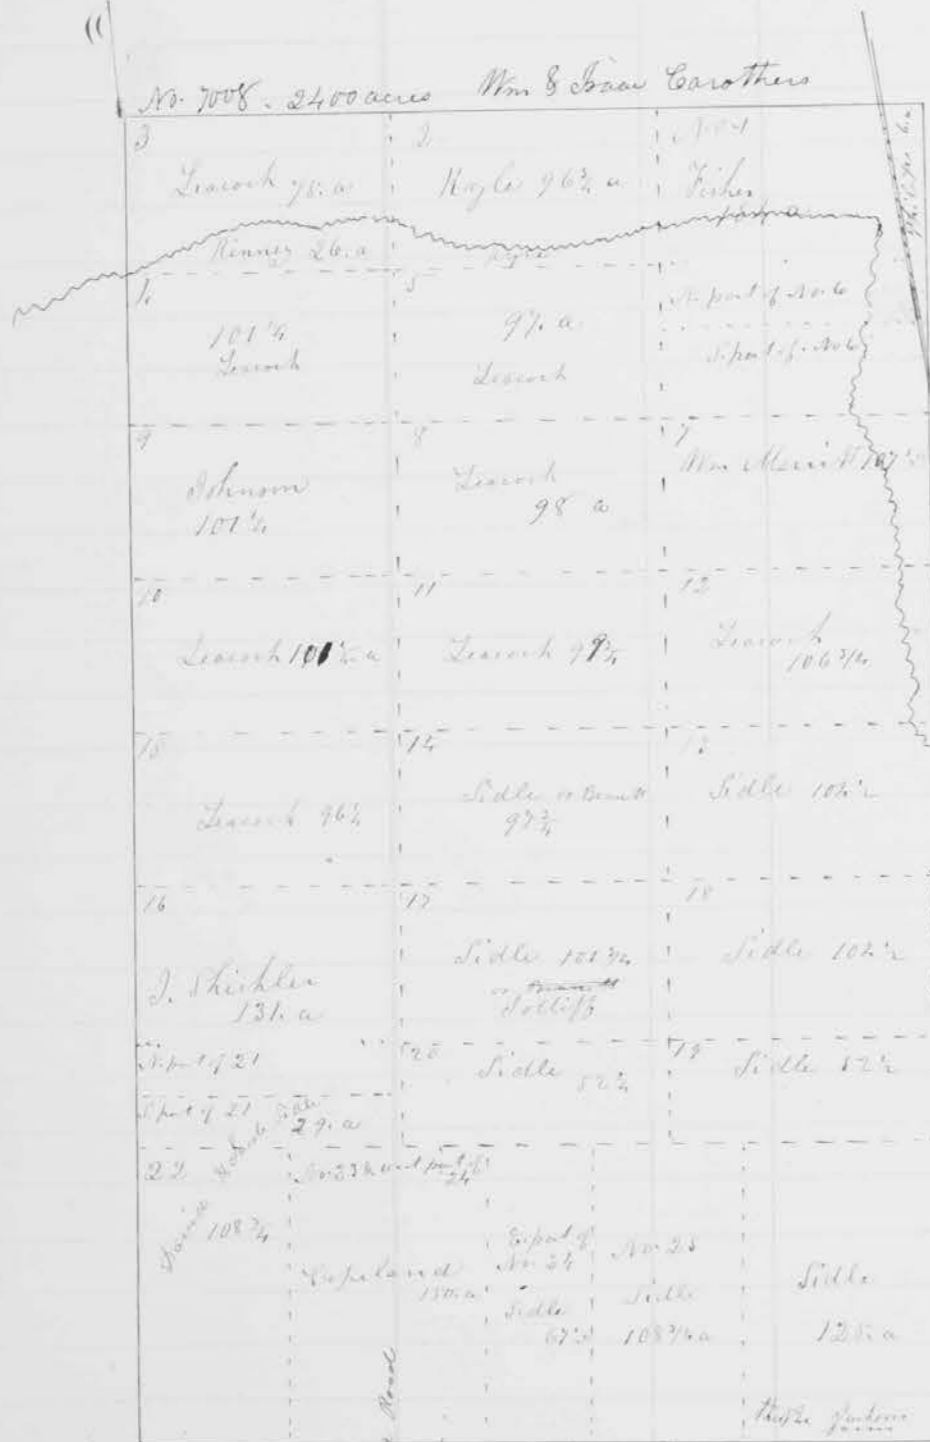 No. 7008. 2400 acres Wm & Isaac Carothers
3
Leacock 78. a
2
Kogle 96¾ a
No 1
Fisher
Kinney 26. a
101¼
Leacock
5
97. a
Leacock
N. part of No. 6
S. part of No 6
9
Johnson
101¼
8
Leacock
98 a
7
Wm Merritt 107½
10
Leacock 101¼ a
11
Leacock 99¾
12
Leacock
106 3/4
15
Leacock 96¼
14
Sidle or
97¾
13
Sidle 102½
16
J. Shickler
131. a
17
Sidle 101 3/4
or
18
Sidle 102½
N. part of 21
S part of 21
29. a
20
Sidle 52½
19
Sidle 52½
22
108¾
No. 23 & west part of
24
Copeland
E. part of
No. 24
Sidle
67½
No. 25
Sidle
108 3/4 a
Sidle
125. a
Road